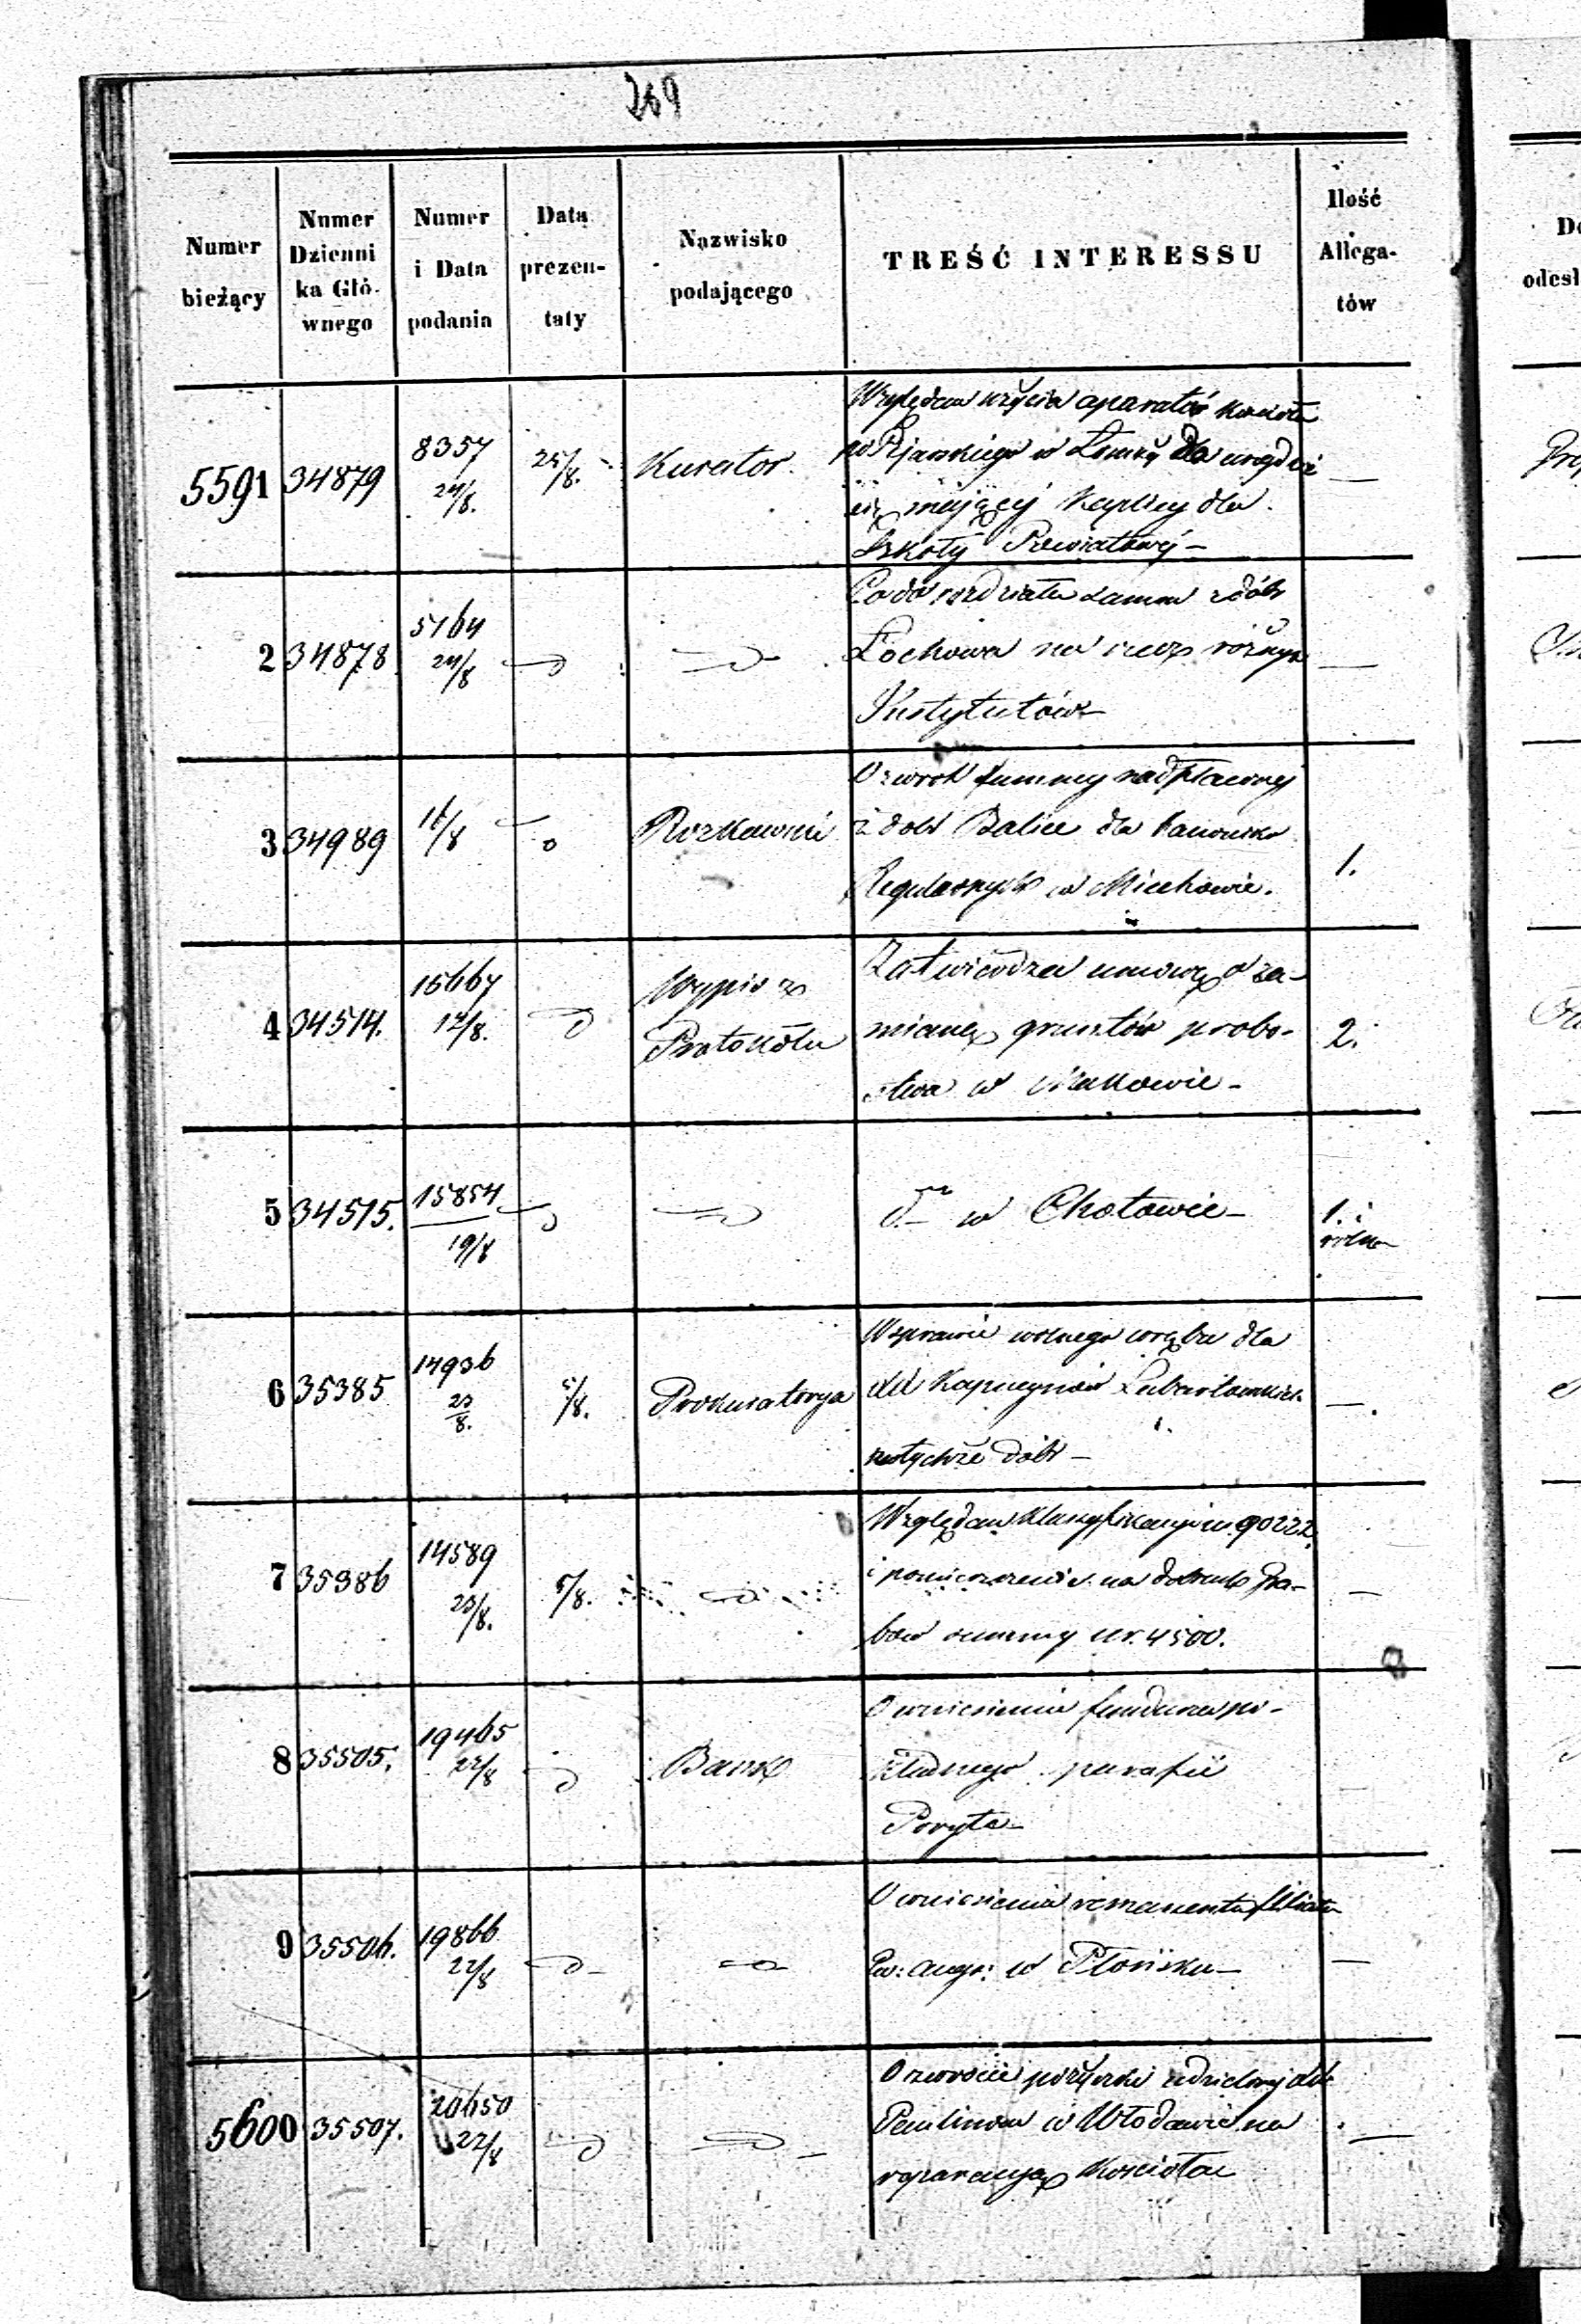 269
Numer bieżący
Numer Dzienni ka Głó- wnego
Numer i Data podania
Data prezen- taty
Nazwisko podającego
TREŚĆ INTERESSU
Ilość Allega- tów
5591 34879 8357 24/8. 25/8. Kurator.
Względem użycia aparatów kościoła
po Pijarskiego w Łomży dla urządzić
się mającej Kaplicy dla
Szkoły Powiatowej —
—
2 34878 5164 24/8
Co do rozdziału summ z dóbr
Łochowa na rzecz różnych
Instytutów —
—
3 34989 16/8
O zwrot summy nadpłaconej
z dóbr Balice dla Kanonika
Regularnych w Miechowie.
1.
4 34514. 15667 12/8. Wypis z
Protokółu
Zatwierdza umowę o za-
mianę gruntów probo-
stwa w Makowie —
2.
5 34515. 15854 19/8
w Chotowie —
1. i
6 35385 14936 23/8. 5/8. Prokuratorya
W sprawie wolnego wrębu dla
XX Kapucynów Lubartowskich
z dóbr —
—.
7 35386 14589 23/8. 5/8.
Względem klasyfikacyi
i pomieszczenia na dobrach Gra-
bów summy 4500.
—
8 35505. 19465 22/8 Bank
O wniesienie funduszu po-
kładnego parafii
Poryte —
—
9 35506. 19866 22/8
O wniesienie remanentu
Ew: augs: w Płońsku —
—
5600 35507. 20650 22/8
O zwrocie pożyczki udzielonej XX
Paulinom w Włodawie na
reparacyę Kościoła
—
Do
odesł